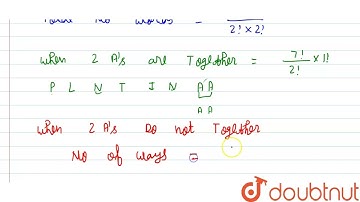 Total No words =
2! × 2!
When 2 A's are Together = 7! / 2! × 1!
P L N T I N A A
A A
When 2 A's Do not Together
No of Ways =
doubtnut